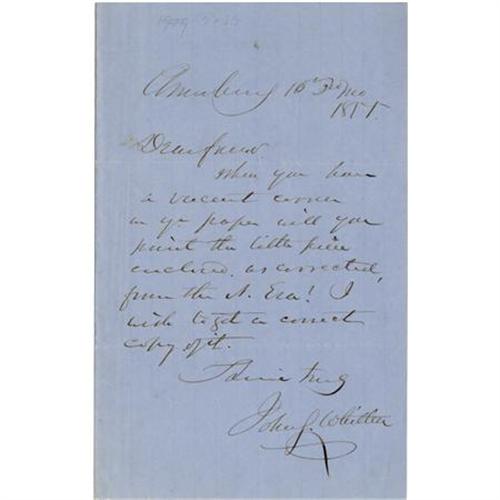 Amesbury 15th 3rd mo
1857.
Dear friend.
When you have
a vacant corner
in yr paper will you
print the little piece
enclosed, as corrected,
from the N. Era? I
wish to get a correct
copy of it.
Thine truly
John G. Whittier